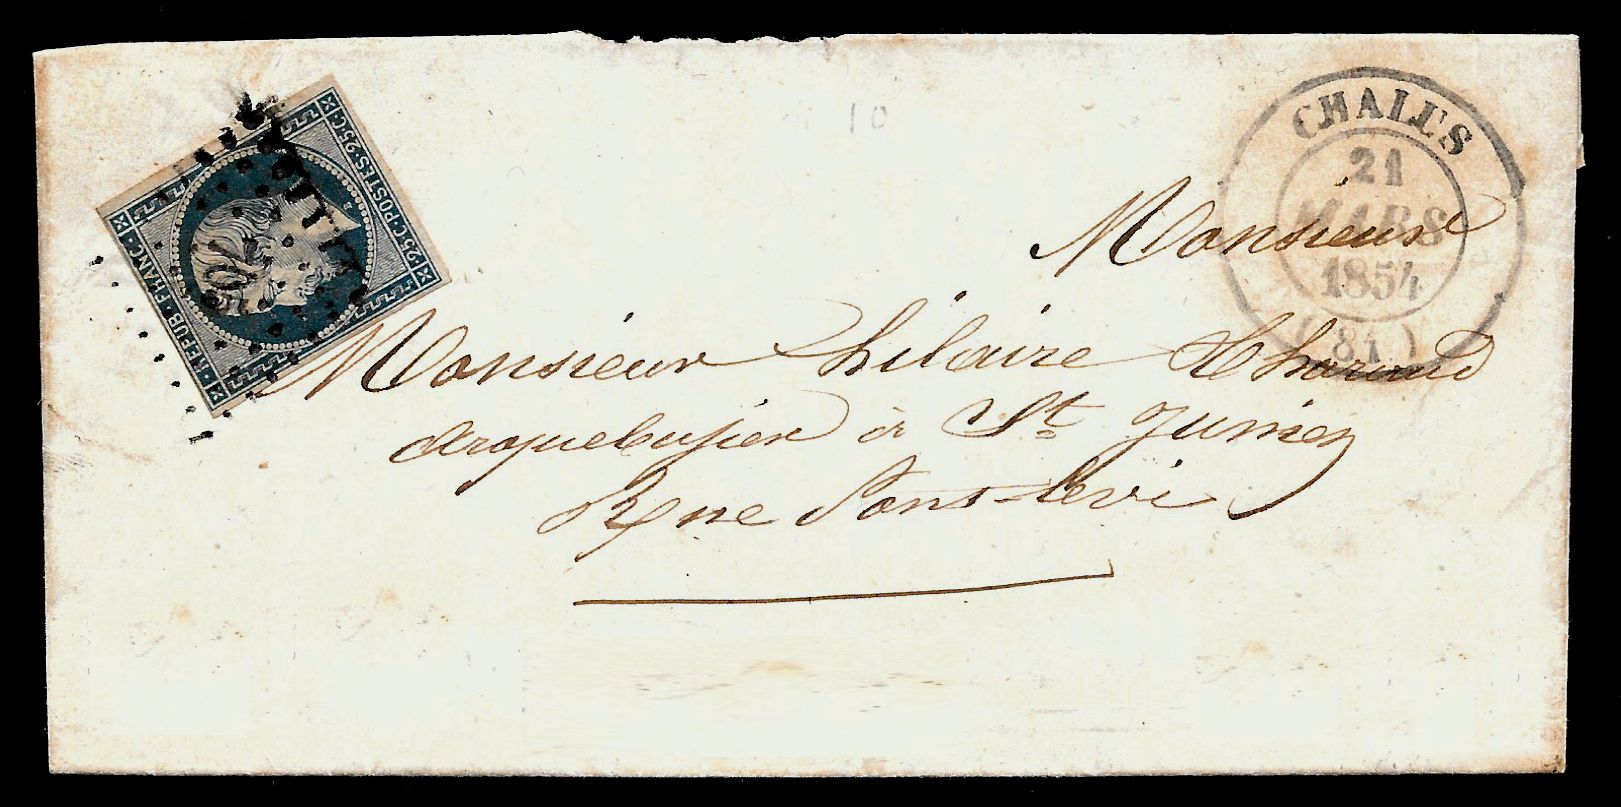 10
CHALUS
21
MARS
1854
(81)
REPUB·FRANC·
25·C·POSTES·25·C·
Monsieur
Monsieur hilaire Charaud
arquebusier à St Junien
Rue Pont-levi